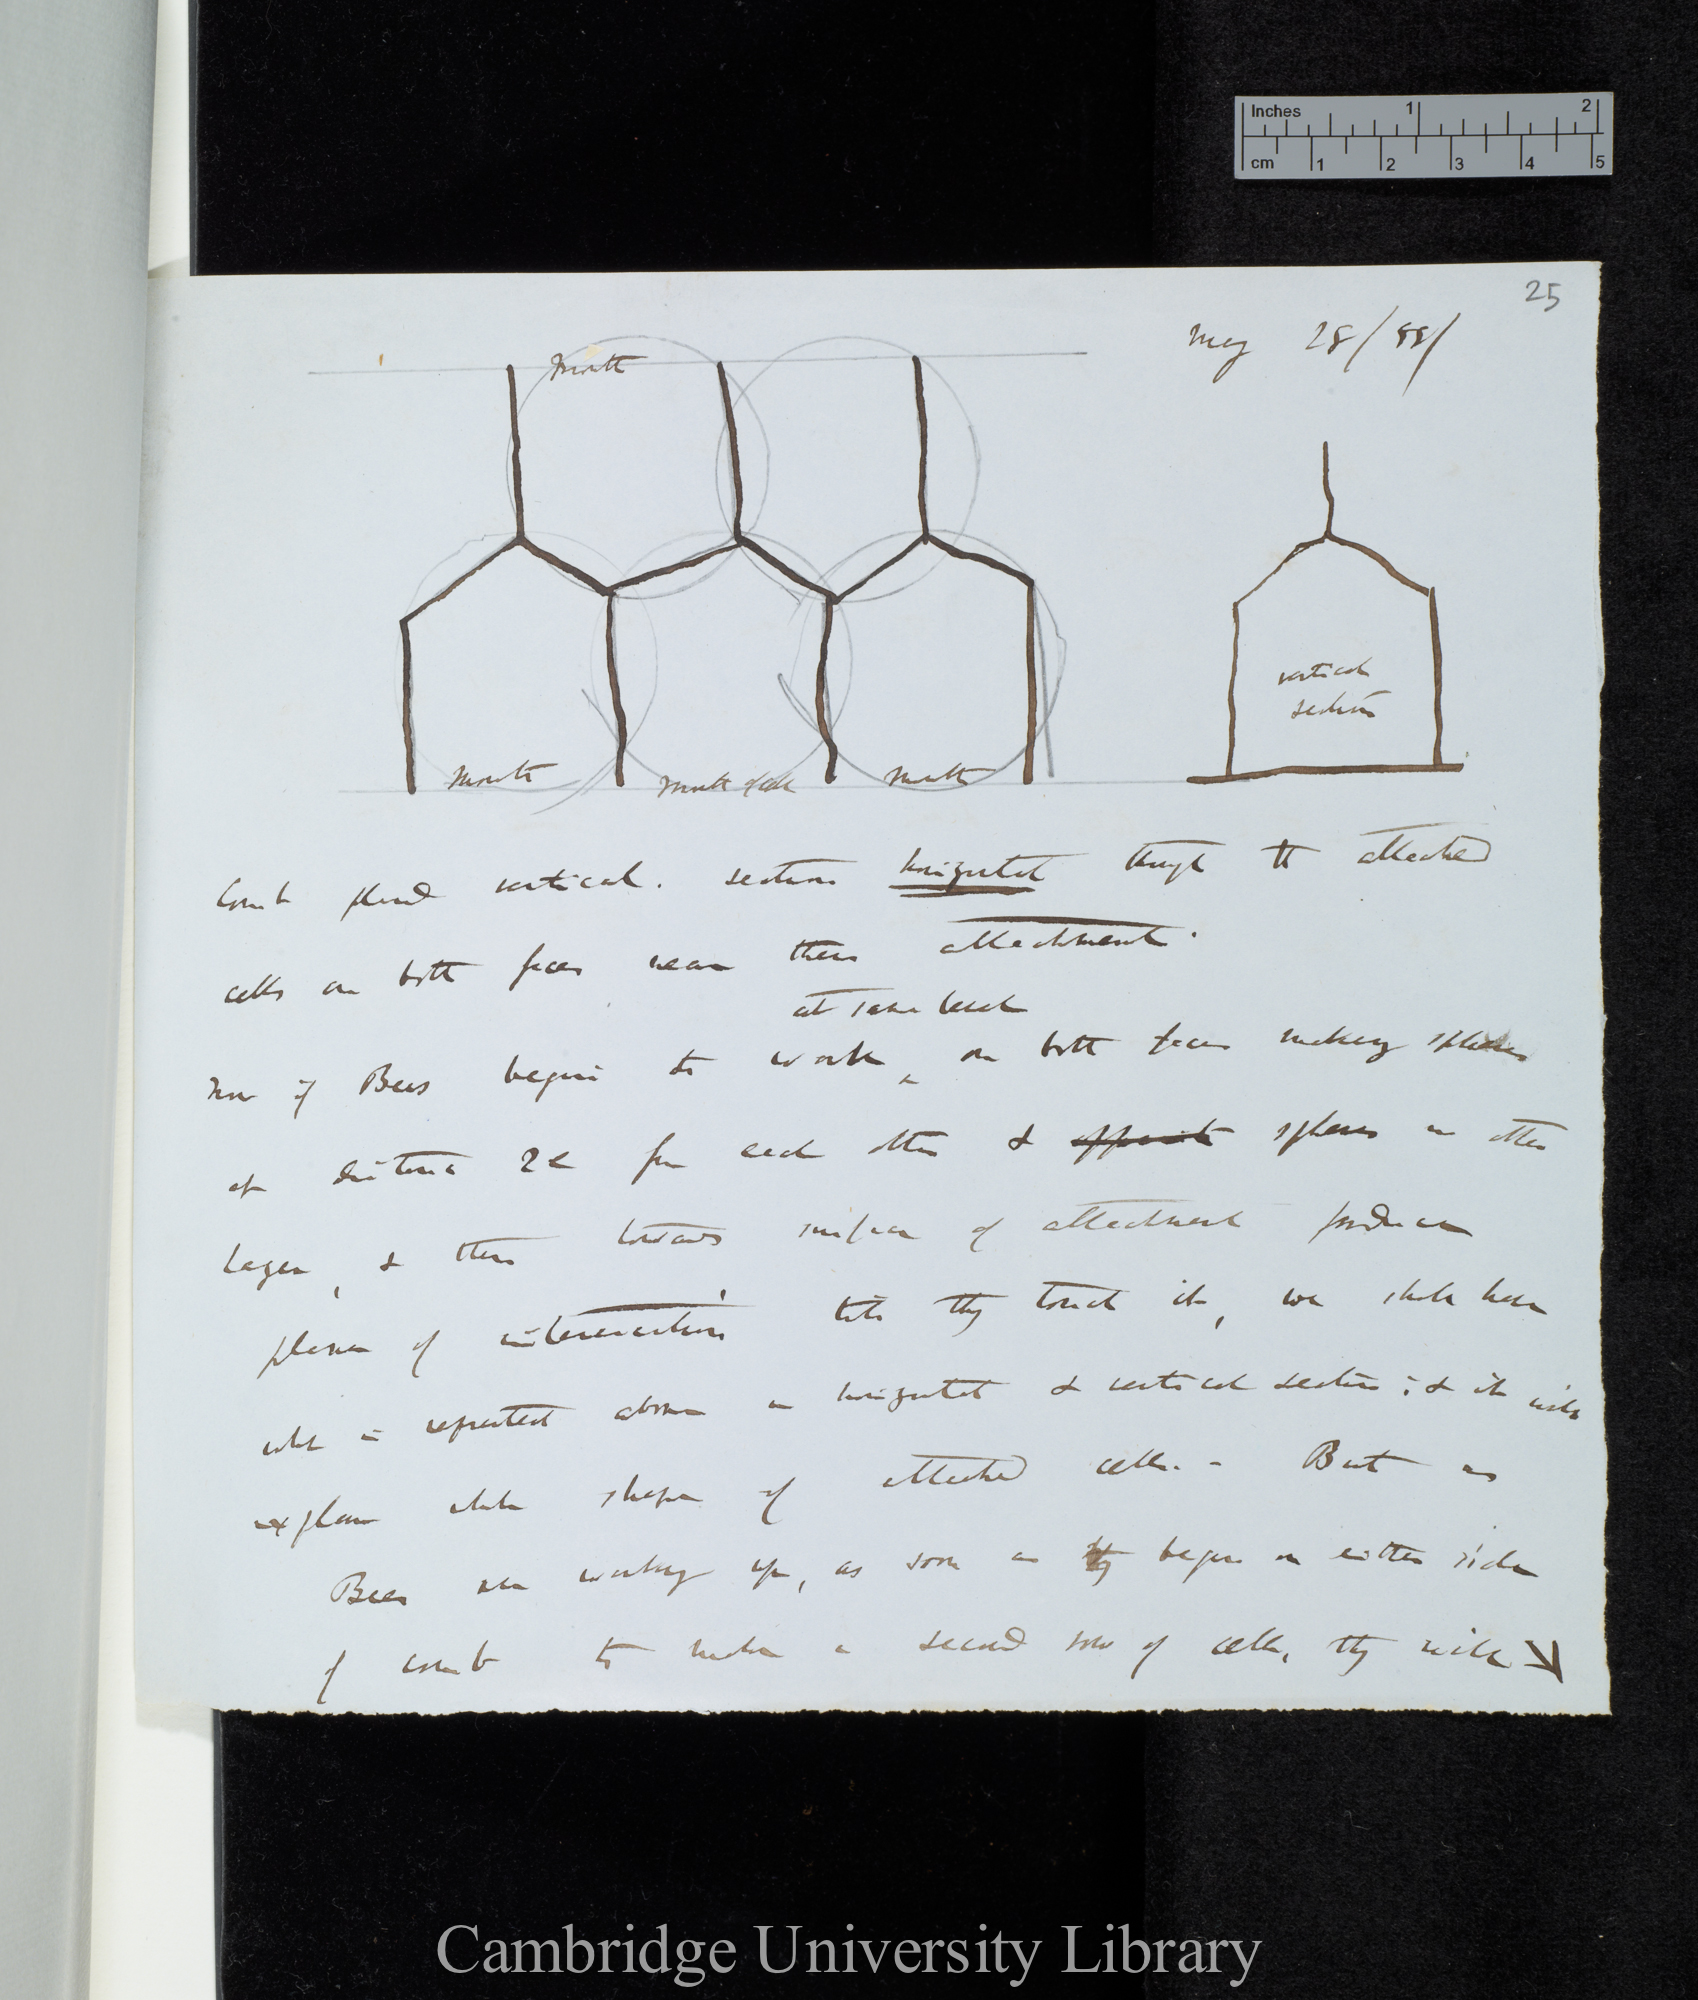 Inches 1 2
cm 1 2 3 4 5
25
May 28/58/
Mouth
vertical
section
Mouth Mouth of cell Mouth
Comb placed vertical. section horizontal through the attached
cells on both faces near their attachment.
at same level
Now if Bees begin to work ‸ on both faces making spheres
at distance from each other & opposite spheres in other
layer, & then towards surface of attachment produce
planes of intersection, till they touch it, we shall have
what is represented above in horizontal & vertical section; & it will
explain whole shape of attached cells. – But as
Bees are working up, as soon as they begin on either side
of comb to make a second row of cells, they will
Cambridge University Library